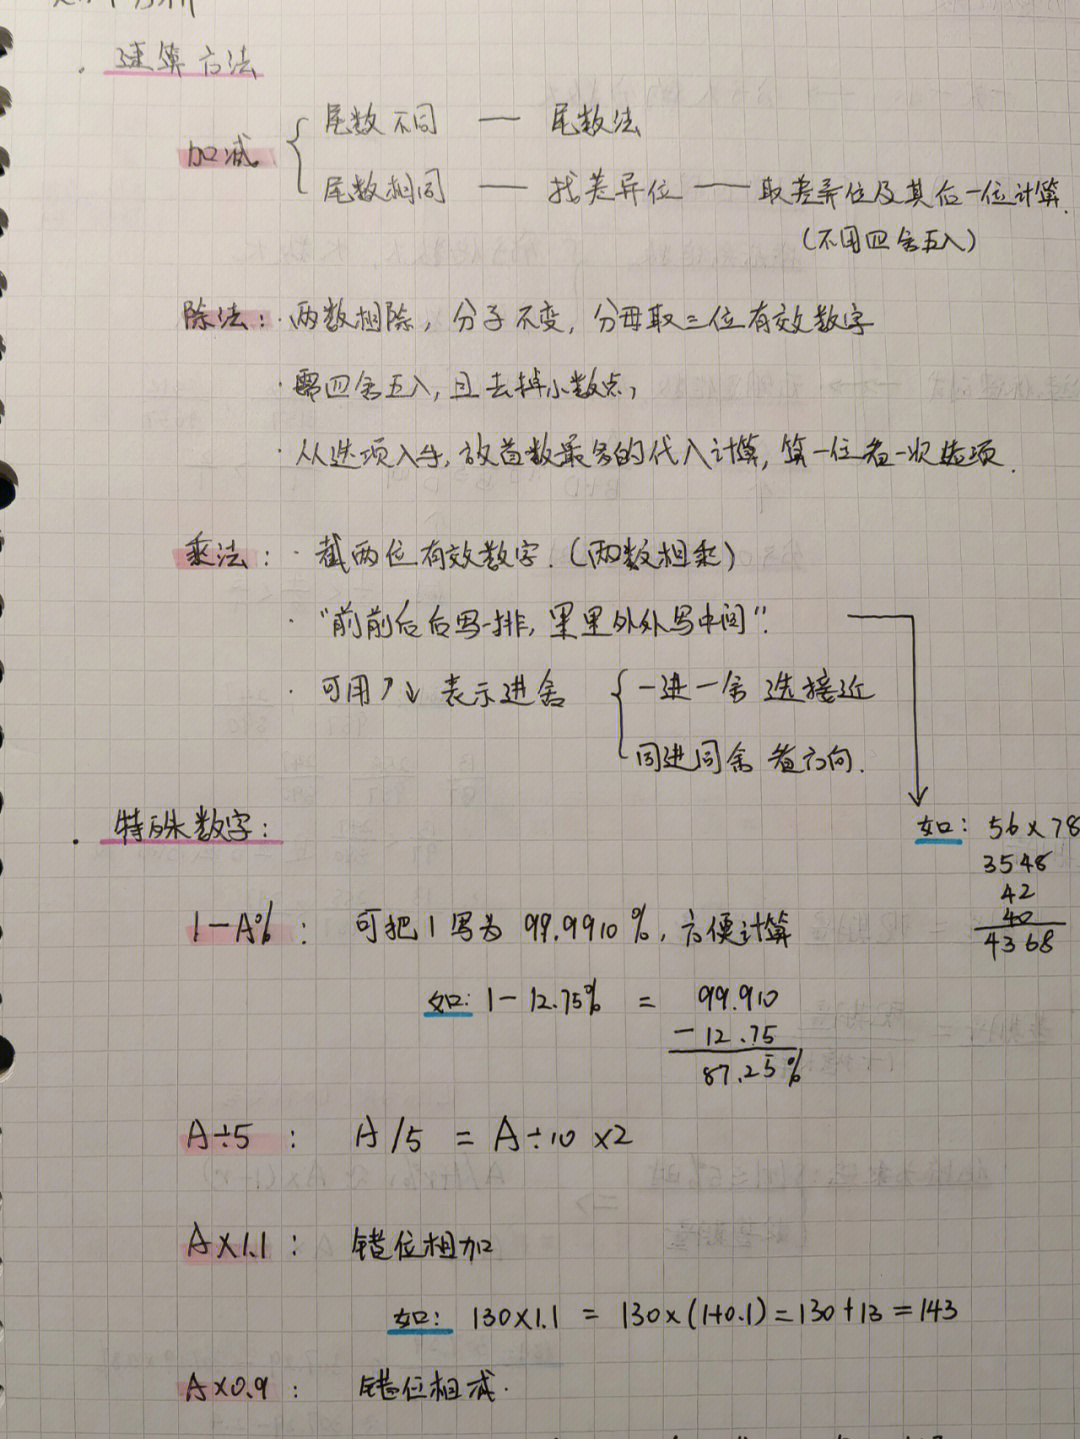 速算方法
加减 { 尾数不同 — 尾数法
尾数相同 — 找差异位 — 取差异位及其后一位计算.
(不用四舍五入)
除法: · 两数相除, 分子不变, 分母取三位有效数字
· 需四舍五入, 且去掉小数点,
· 从选项入手, 放首数最多的代入计算, 算一位看一次选项.
乘法: · 截两位有效数字. (两数相乘)
· "前前后后写一排, 里里外外写中间".
· 可用↗↓表示进舍 { 一进一舍 选接近
同进同舍 看方向.
· 特殊数字:
如: 56×78
3548
42
40
4368
1-A%: 可把1写为 99.9910%, 方便计算
如: 1-12.75% = 99.910
-12.75
87.25%
A÷5: A/5 = A÷10×2
A×1.1: 错位相加
如: 130×1.1 = 130×(1+0.1)=130+13=143
A×0.9: 错位相减.